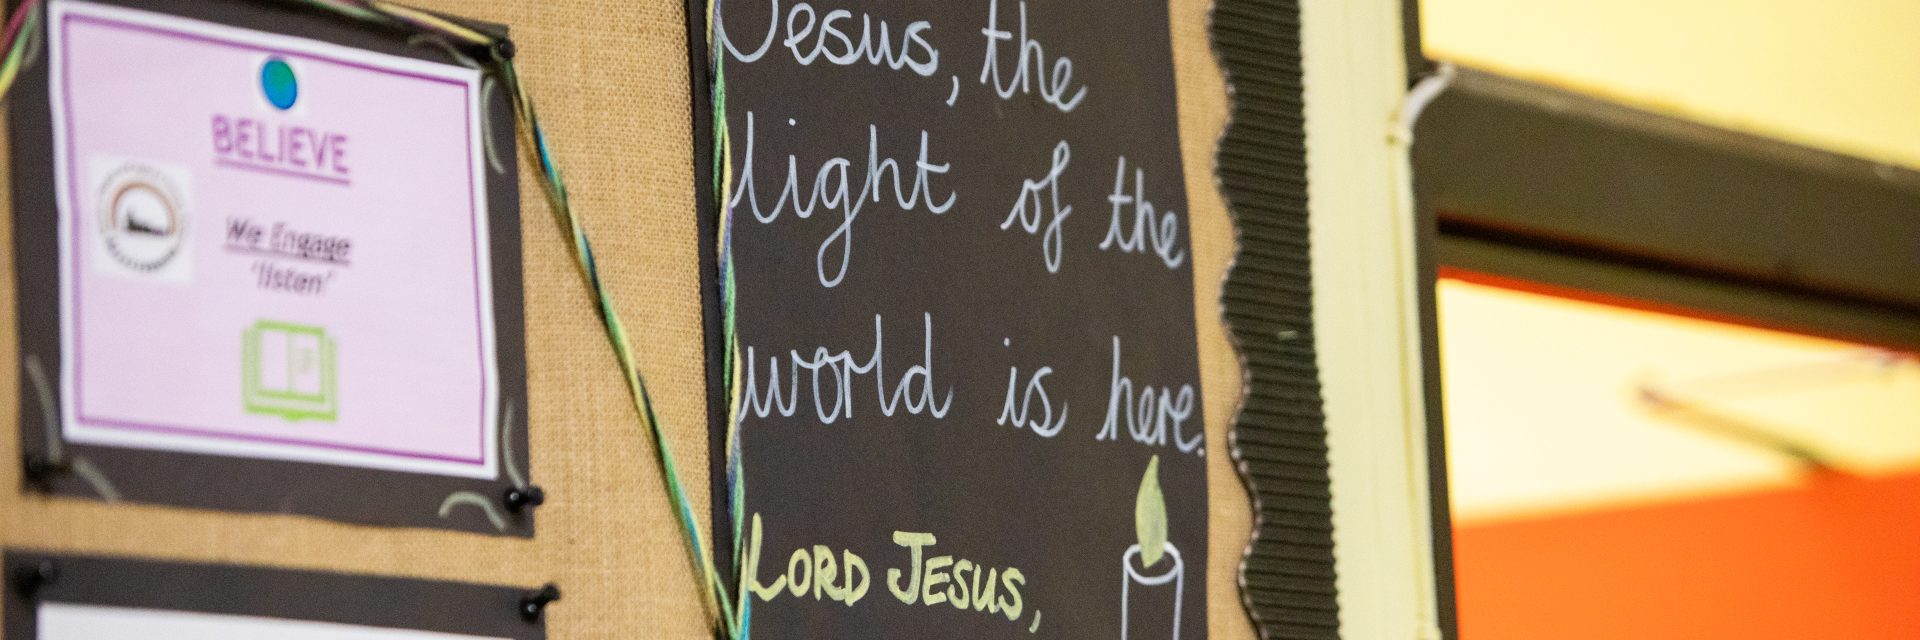 BELIEVE
We Engage
'listen'
Jesus, the
light of the
world is here.
LORD JESUS,